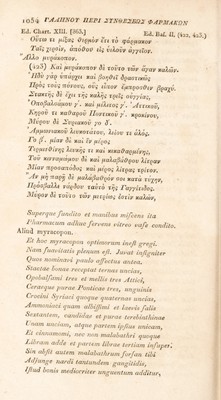 1054 ΓΑΛΗΝΟΥ ΠΕΡΙ ΣΥΝΘΕΣΕΩΣ ΦΑΡΜΑΚΩΝ
Ed. Chart. XIII. [863.] Ed. Baf. II. (422. 423.)
Οὕτω τι μίξας θερμὸν ἔτι τὸ φάρμακον
Ταῖς χερσὶν, ἀπόθου εἰς ὑελοῦν ἀγγεῖον.
Ἄλλο μυράκοπον.
(423) Καὶ μυράκοπον δὲ τοῦτο τῶν ἄγαν καλῶν.
πρὸς τοὺς πόνους, οὓς εἶπον ἔμπροσθεν βραχύ.
Στακτῆς δὲ ἔχει τῆς καλῆς τρεῖς οὐγγίας,
Ὀποβαλσάμου γʹ. καὶ μέλιτος γʹ. Ἀττικοῦ,
Κηροῦ τε καθαροῦ Ποντικοῦ γʹ. κροκίνου,
Μύρου δὲ Συριακοῦ γο δʹ.
Ἀμμωνιακοῦ λευκοτάτου, λείου τε ὁλὸς,
Γο βʹ.
Τερμινθίνης λεπτῆς τε καὶ κεκαθαρμένης,
Τοῦ κινναμώμου δὲ καὶ μαλαβάθρου λίτραν
Μίαν προσαπόδος καὶ μέρος λίτρας τρίτον.
Ἂν μὴ παρῇ δὲ μαλάβαθρόν σοι κατὰ τύχην,
Πρόσβαλλε νάρδου ταὐτὸ τῆς Γαγγίτιδος.
Μύρον δὲ τοῦτο τῶν μετρίως ἐστὶν καλῶν.
Superque fundito et manibus misceas ita
Pharmacum adhuc fervens vitreo vase condito.
Aliud myracopon.
Et hoc myracopon optimorum inest gregi.
Nam juvcitatis plenum est. Juvat insigniter
Quos nominavi paulo affectus antea.
Stactae bonae receptat ternas uncias,
Opobalsami tres et mellis tres Attici,
Ceraeque purae Ponticae tres, unguinis
Crocini Syriaci quoque quaternas uncias,
Ammoniaci quam albissimi et laevis satis
Sextantem, candidae et purae terbinthinae
Unam unciam, atque partem ipsius unicam,
Et cinnamomi, nec non malabathri quoque
Libram adde et partem librae tertiam insuper.
Sin absit autem malabathrum forsan tibi
Adjunge nardi tantundem gangitidis,
Istud bonis mediocriter unguentum additur,